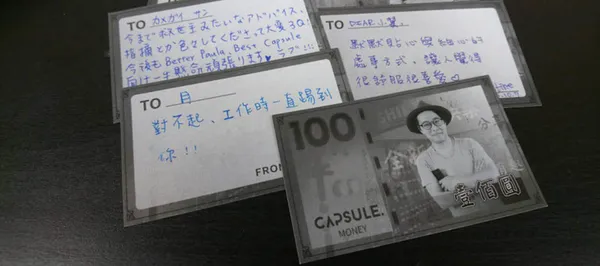 TO カメガイ サン
今まで秋を主みたいなアドバイス、
指摘とか色々してくださって大変3Q!
今後も Better Paula, Best Capsule
向け一生懸命頑張ります♥ ラブ!!!
TO DEAR.小翼.
默默貼心很細心的
處事方式,讓人覺得
很舒服很喜愛♡
TO 月
對不起、工作時一直踢到
你!!
FRO
100
CAPSULE.
MONEY
壹佰圓